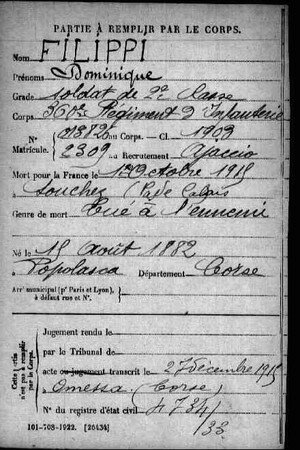 PARTIE À REMPLIR PAR LE CORPS.
Nom FILIPPI
Prénoms Dominique
Grade Soldat de 2e Classe
Corps 360e Régiment d'Infanterie
N° 01872b au Corps. — Cl. 1903
Matricule. 2309 au Recrutement Ajaccio
Mort pour la France le 1er Octobre 1915
à Souchez (Pas de Calais)
Genre de mort Tué à l'ennemi
Né le 15 Août 1882
à Popolasca Département Corse
Arrt municipal (pr Paris et Lyon), à défaut rue et N°.
Cette partie n'est pas à remplir par le Corps.
Jugement rendu le
par le Tribunal de
acte ou jugement transcrit le 27 décembre 1915
à Omessa (Corse)
N° du registre d'état civil 4734/33
101-708-1922. [26434]